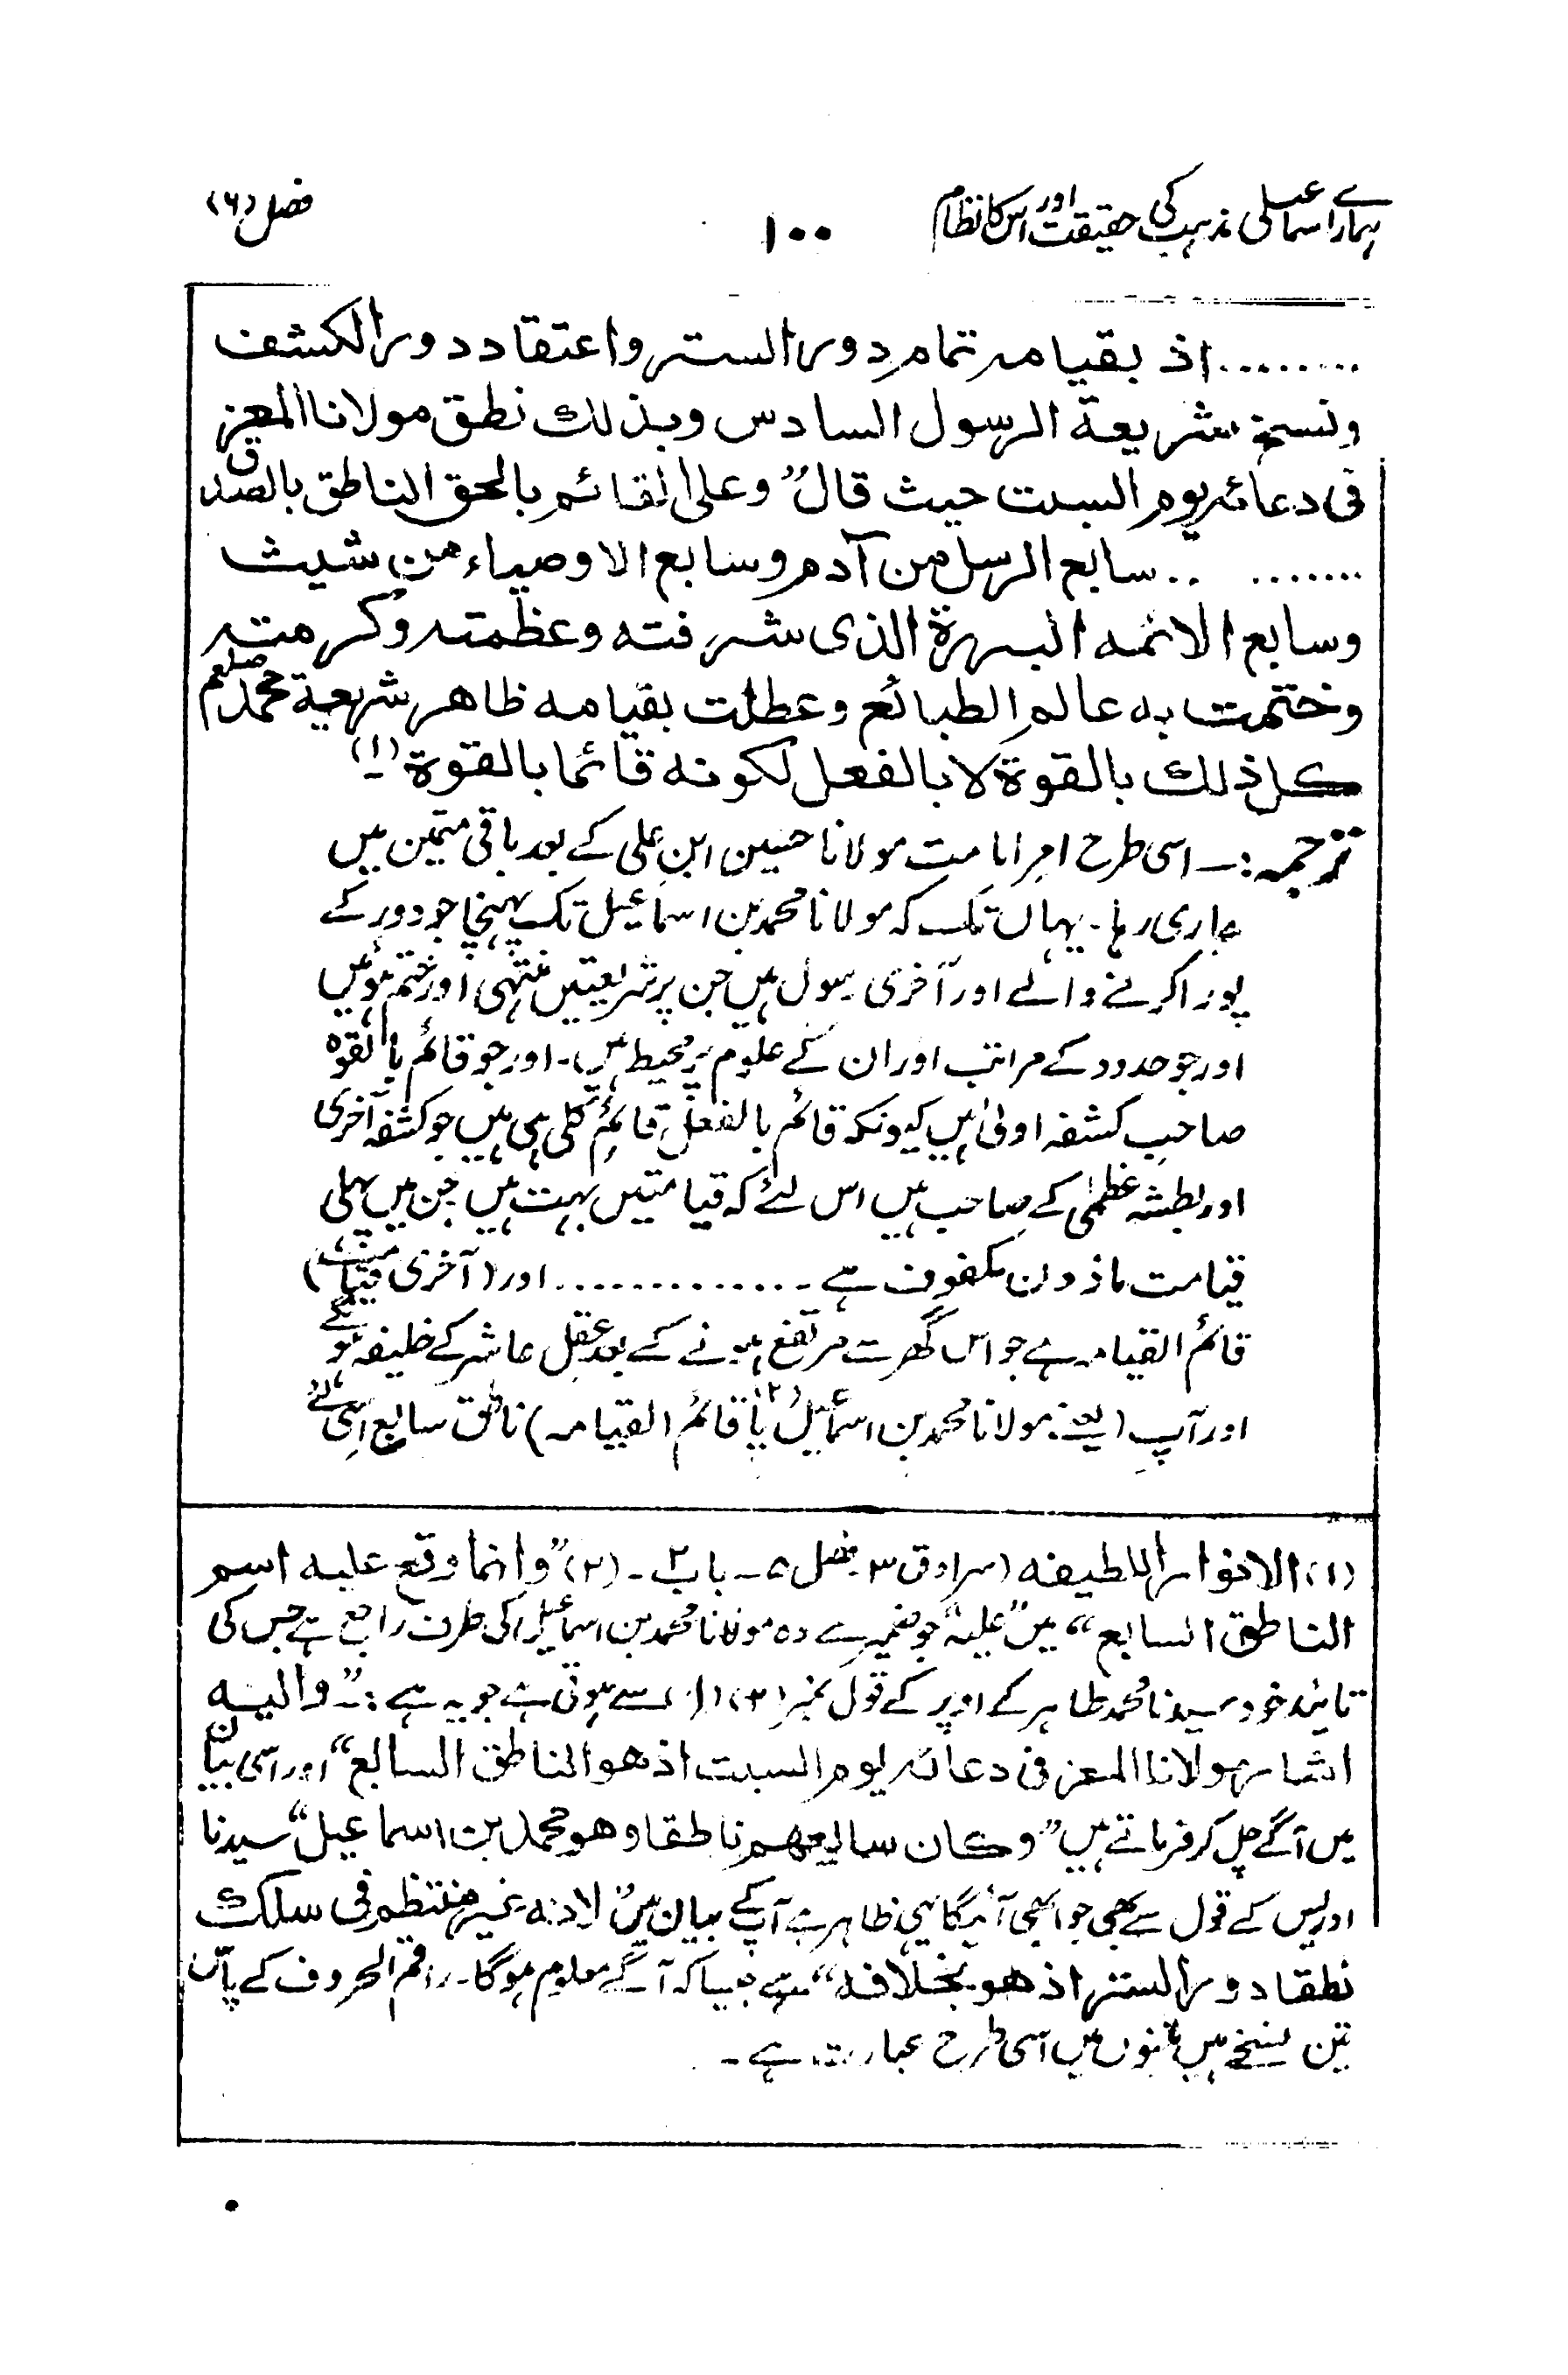 ہمارے اسماعیلی مذہب کی حقیقت اور اس کا نظام
۱۰۰
فصل (۶)
.........اذ بقیامہ تمام دور الستر واعتقاد دور الکشف
ونسخ شریعۃ الرسول السادس وبذلک نطق مولانا المعز
فی دعائہ یوم السبت حیث قال ”وعلی القائم بالحق الناطق بالصدق
....... ..سابع الرسل من آدم وسابع الاوصیاء من شیث
وسابع الائمہ البررۃ الذی شرفتہ وعظمتہ وکرمتہ
وختمت بہ عالم الطبائع وعطلت بقیامہ ظاہر شریعۃ محمد صلعم
کل ذلک بالقوۃ لا بالفعل لکونہ قائما بالقوۃ (۱)
ترجمہ :۔ اسی طرح امر امامت مولانا حسین ابن علی کے بعد باقی متمین میں
جاری رہا۔ یہاں تک کہ مولانا محمد بن اسماعیل تک پہنچا جو دور کے
پورا کرنے والے اور آخری رسول ہیں جن پر شریعتیں منتہی اور ختم ہوئیں
اور جو حدود کے مراتب اور ان کے علوم پر محیط ہیں۔ اور جو قائم بالقوہ
صاحب کشفہ اولیٰ ہیں کیونکہ قائم بالفعل قائم کلی ہی ہیں جو کشفہ آخری
اور بطشہ عظمیٰ کے صاحب ہیں اس لئے کہ قیامتیں بہت ہیں جن میں پہلی
قیامت ماذون مکفوف ہے ۔.............اور (آخری قیامت)
قائم القیامہ ہے جو اس گھر سے مرتفع ہونے کے بعد عقل عاشر کے خلیفہ ہونگے
اور آپ (یعنے مولانا محمد بن اسماعیل یا قائم القیامہ)(۲) ناطق سابع اسی لئے
(۱) الانوار اللطیفہ (سرادق ۳ فصل ۵ ۔ باب ۲ ۔ (۲) ”وانما وقع علیہ اسم
الناطق السابع“ میں ”علیہ“ جو ضمیر ہے وہ مولانا محمد بن اسماعیل کی طرف راجع ہے جس کی
تائید خود سیدنا محمد طاہر کے اوپر کے قول نمبر (۳) سے ہوتی ہے جو یہ ہے :۔ ”والیہ
اشار مولانا المعز فی دعائہ لیوم السبت اذ ھو الناطق السابع“ اور اسی بیان
میں آگے چل کر فرماتے ہیں ”وکان سابعھم ناطقا وھو محمد بن اسماعیل“ سیدنا
ادریس کے قول سے بھی جو ابھی آئیگا یہی ظاہر ہے آپ کے بیان میں ”لانہ غیر منتظم فی سلک
نطقا دور الستر اذ ھو بخلافہ“ ہے جیسا کہ آگے معلوم ہوگا۔ راقم الحروف کے پاس
تین نسخے ہیں تینوں میں اسی طرح عبارت ہے ۔